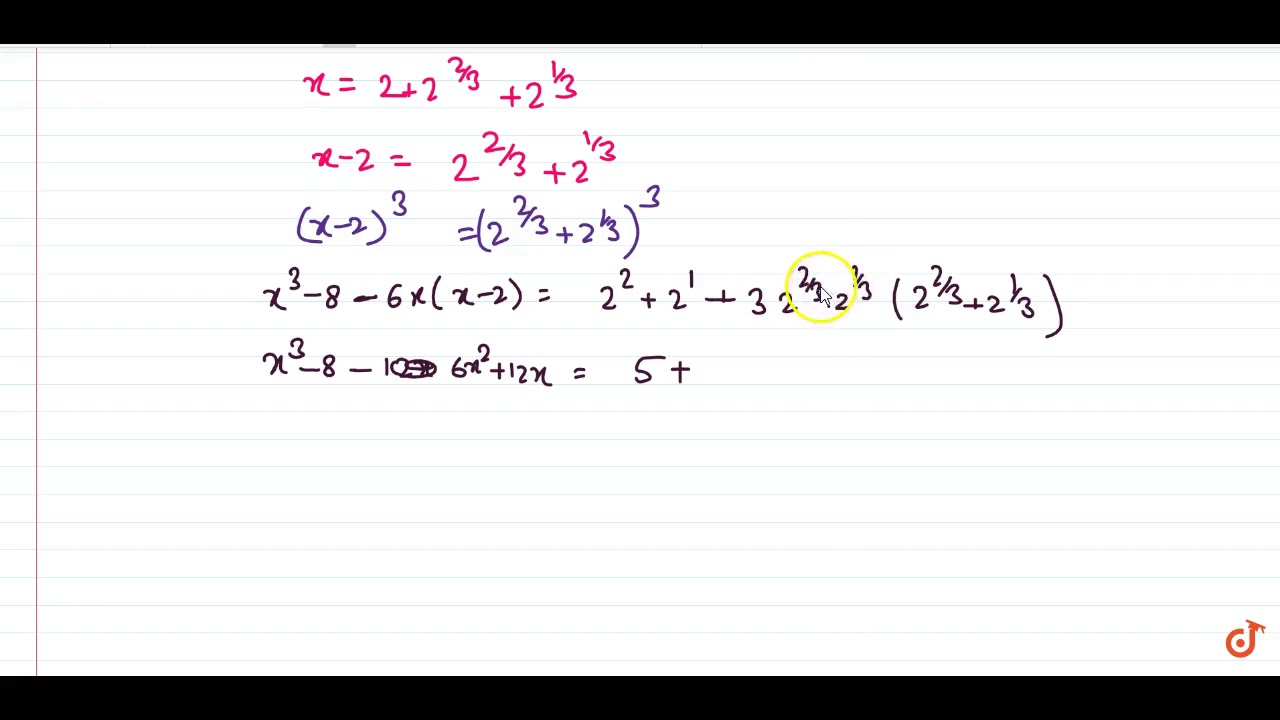 x = 2+2^2/3 +2^1/3
x-2 = 2^2/3 +2^1/3
(x-2)^3 =(2^2/3 +2^1/3)^3
x^3 -8 -6x(x-2) = 2^2 +2^1 + 3 2^2/3 2^1/3 (2^2/3 +2^1/3)
x^3 -8 - 6x^2 +12x = 5 +